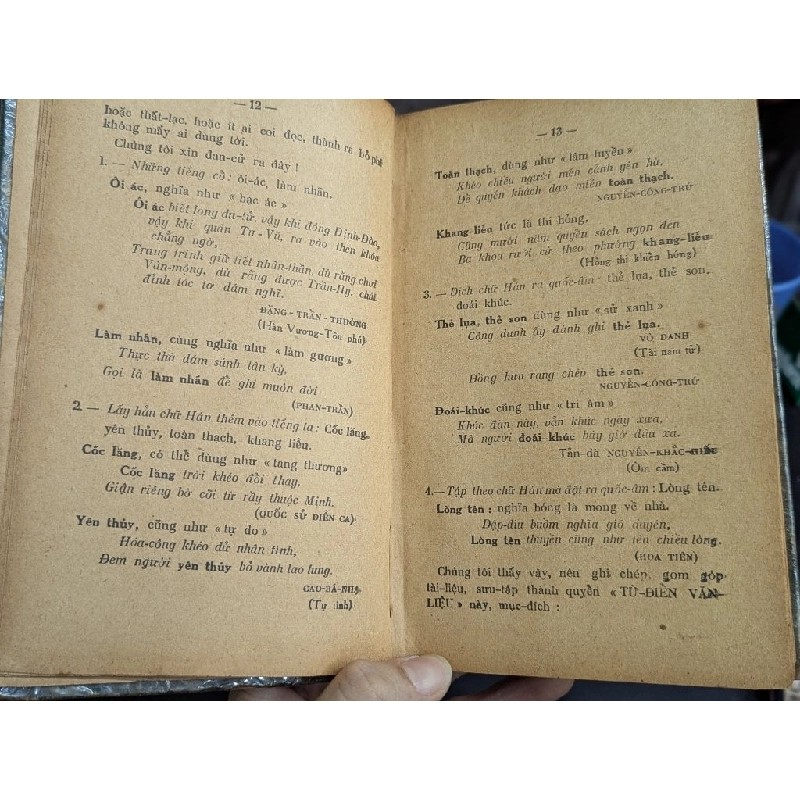 — 12 —
hoặc thất-lạc, hoặc ít ai coi đọc, thành ra bỏ phế
không mấy ai dùng tới.
Chúng tôi xin đan-cử ra đây !
1. — Những tiếng cổ : ôi-ác, làm nhăn.
Ôi ác, nghĩa như « bạc ác »
Ôi ác biết lòng du-tử, vậy khi đóng Đinh-Đắc,
vậy khi quán Tư-Vũ, ra vào then khóa
chẳng ngờ,
Trung trinh giữ tiết nhân-thần, dù rằng chơi
Vân-mông, dù rằng được Trần-Hy, chất
đinh tóc tơ dám nghĩ.
ĐẶNG-TRẦN-THƯỜNG
(Hàn Vương-Tôn phú)
Làm nhăn, cũng nghĩa như « làm gương »
Thực thà dám sánh tân kỳ,
Gọi là làm nhăn để ghi muôn đời
(PHAN-TRẦN)
2. — Lấy hẳn chữ Hán thêm vào tiếng ta : Cốc lăng,
yên thủy, toàn thạch, khang liêu.
Cốc lăng, có thể dùng như «tang thương»
Cốc lăng trời khéo đổi thay,
Giận riêng bờ cõi từ rày thuộc Minh.
(QUỐC SỬ DIỄN CA)
Yên thủy, cũng như « tự do »
Hóa-công khéo dử nhân tình,
Đem người yên thủy bỏ vành lao lung.
CAO-BÁ-NHẠ
(Tự tình)
— 13 —
Toàn thạch, dùng như « lâm tuyền »
Khéo chiều người mến cảnh yên hà,
Đỗ quyên khách dạo miền toàn thạch.
NGUYỄN-CÔNG-TRỨ
Khang-liêu tức là thi hỏng,
Cũng mười năm quyển sách ngọn đèn
Ba khoa rượt cử theo phường khang-liêu.
(Hỏng thi khiển hứng)
3. — Dịch chữ Hán ra quốc-âm : thẻ lụa, thẻ son,
đoái khúc.
Thẻ lụa, thẻ son dùng như « sử xanh »
Công danh ấy dành ghi thẻ lụa.
VÔ DANH
(Tài nam tử)
Đồng hưu rạng chép thẻ son.
NGUYỄN-CÔNG-TRỨ
Đoái-khúc cũng như « tri âm »
Khúc đàn này, vẫn khúc ngày xưa,
Mà người đoái khúc bây giờ đâu xa.
Tản-đà NGUYỄN-KHẮC-HIẾU
(Ôm cầm)
4.—Tập theo chữ Hán mà đặt ra quốc-âm : Lòng tên.
Lòng tên : nghĩa bóng là mong về nhà.
Dập-dìu buồm nghĩa gió duyên,
Lòng tên thuyền cũng như tên chiều lòng.
(HOA TIÊN)
Chúng tôi thấy vậy, nên ghi chép, gom góp
tài-liệu, sưu-tập thành quyển «TỪ-ĐIỂN VĂN-
LIỆU» này, mục-đích :